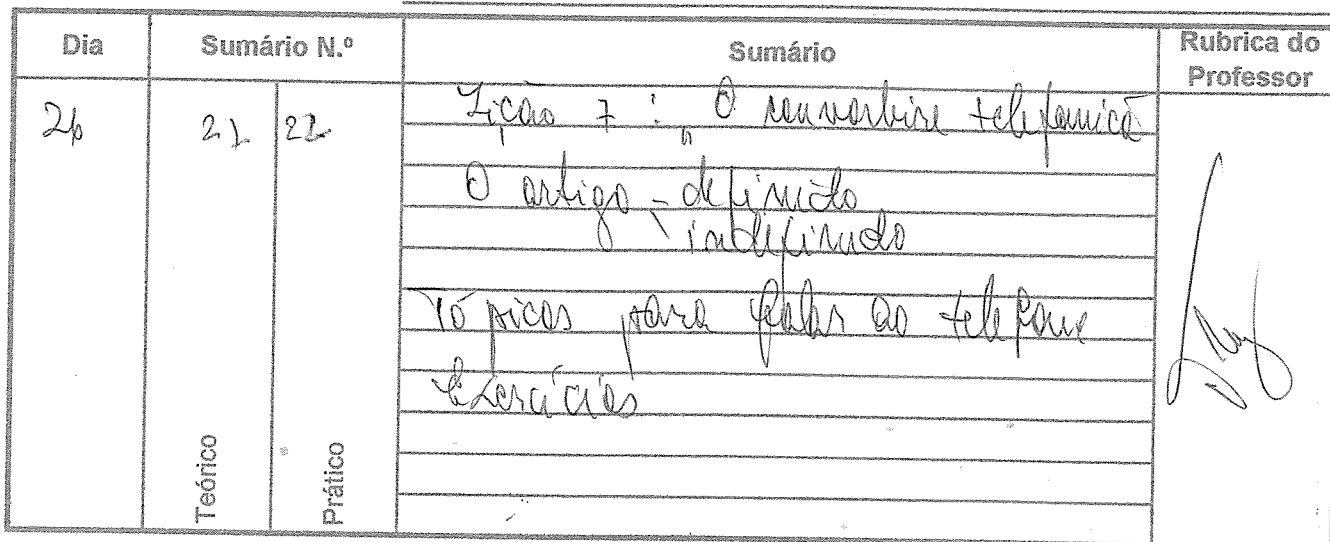 Dia Sumário N.º Sumário Rubrica do Professor
26 21 22 Lição 7: „O convorbire telefonică
O artigo - definido
\ indefinido
Tópicos para falar ao telefone
Exercícios
Teórico Prático